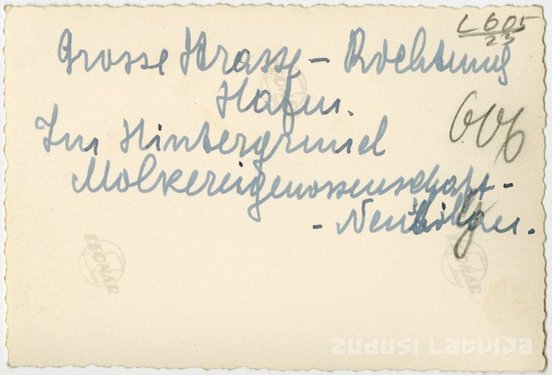 L 605
23
Grosse Strasse - Richtung
Hafen.
606
Im Hintergrund
Molkereigenossenschaft-
- Neubau.
LEONAR
LEONAR
zudusi Latvija